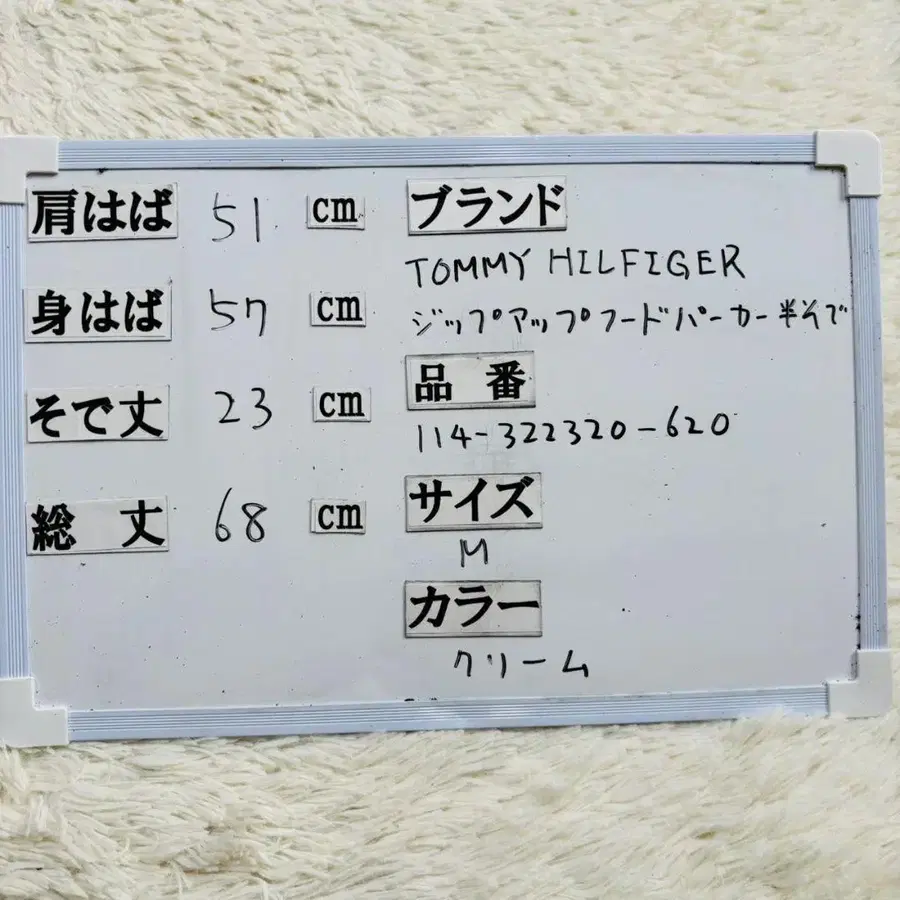 肩はば 51 cm
身はば 57 cm
そで丈 23 cm
総 丈 68 cm
ブランド
TOMMY HILFIGER
ジップアップフードパーカー半そで
品 番
114-322320-620
サイズ
M
カラー
クリーム